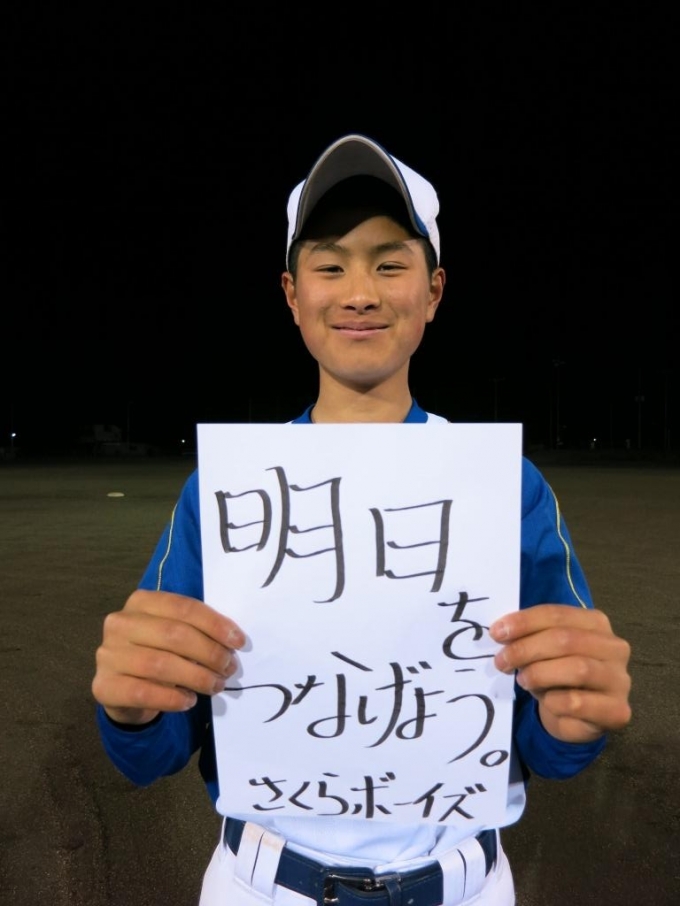 明日
を
つなげよう。
さくらボーイズ